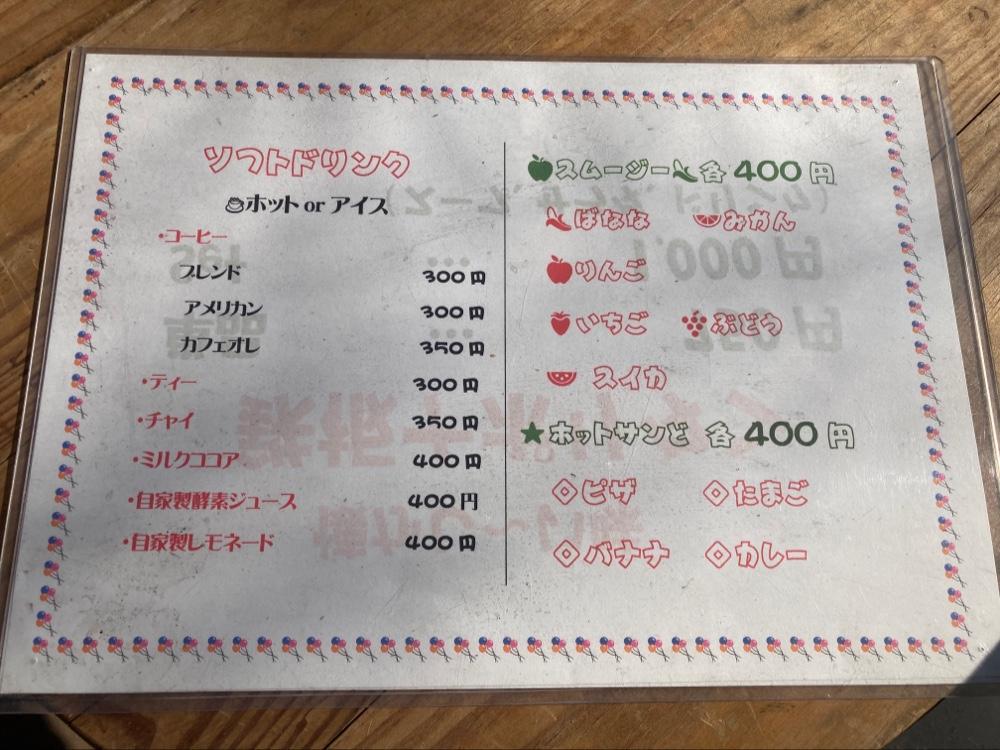 ソフトドリンク
ホット or アイス
・コーヒー
ブレンド 300円
アメリカン 300円
カフェオレ 350円
・ティー 300円
・チャイ 350円
・ミルクココア 400円
・自家製酵素ジュース 400円
・自家製レモネード 400円
スムージー 各 400円
ばなな みかん
りんご
いちご ぶどう
スイカ
★ホットサンど 各 400円
◇ピザ ◇たまご
◇バナナ ◇カレー